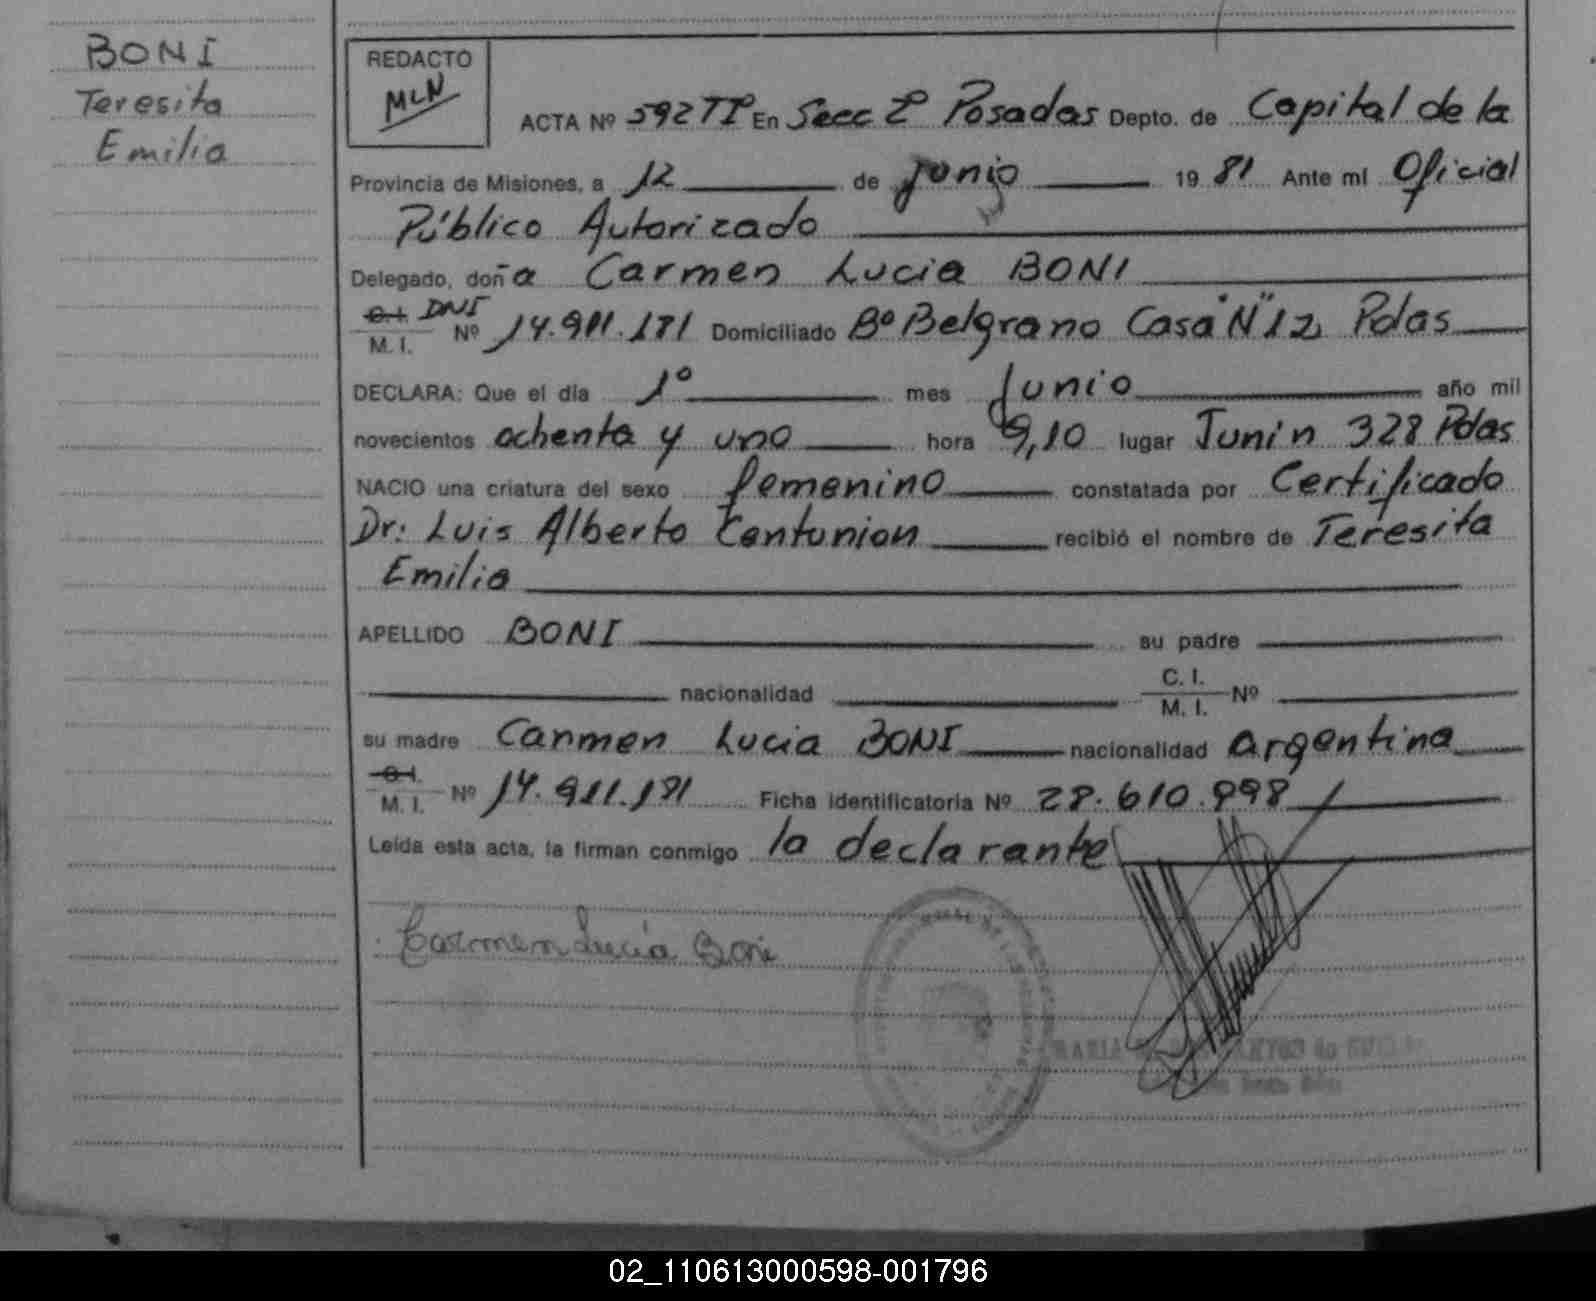 BONI
Teresita
Emilia
REDACTO
MLN
ACTA Nº 592 Tº En Secc 2º Posadas Depto. de Capital de la
Provincia de Misiones, a 12 de junio 19 81 Ante mi Oficial
Público Autorizado
Delegado, doña Carmen Lucia BONI
C.I. DNI
M. I. Nº 14.911.181 Domiciliado Bº Belgrano Casa "N" 12 Pdas
DECLARA: Que el dia 1º mes Junio año mil
novecientos ochenta y uno hora 9,10 lugar Junin 328 Pdas
NACIO una criatura del sexo femenino constatada por Certificado
Dr: Luis Alberto Centurion recibió el nombre de Teresita
Emilia
APELLIDO BONI su padre
nacionalidad C. I. M. I. Nº
su madre Carmen Lucia BONI nacionalidad argentina
C.I.
M. I. Nº 14.911.181 Ficha identificatoria Nº 28.610.898
Leída esta acta, la firman conmigo la declarante
Carmen Lucia Boni
MARIA
02_110613000598-001796